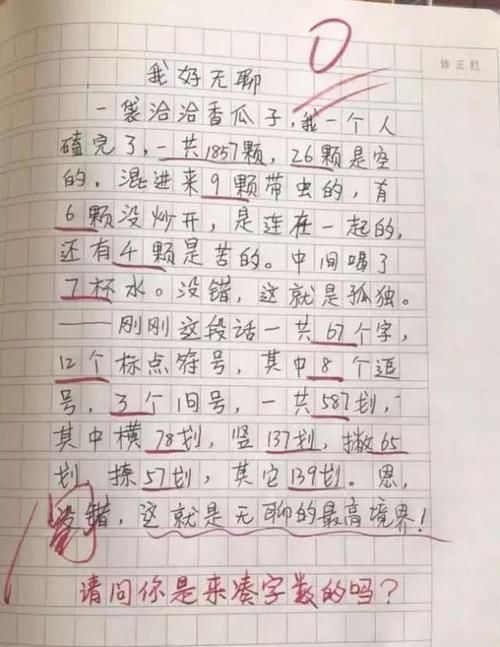 0
修正栏
我好无聊
一袋洽洽香瓜子,我一个人
嗑完了,一共1857颗,26颗是空
的,混进来9颗带虫的,有
6颗没炒开,是连在一起的,
还有4颗是苦的。中间喝了
7杯水。没错,这就是孤独。
——刚刚这段话一共67个字,
12个标点符号,其中8个逗
号,3个句号,一共587划,
其中横78划,竖137划,撇65
划,捺57划,其它139划。恩,
没错,这就是无聊的最高境界!
请问你是来凑字数的吗?